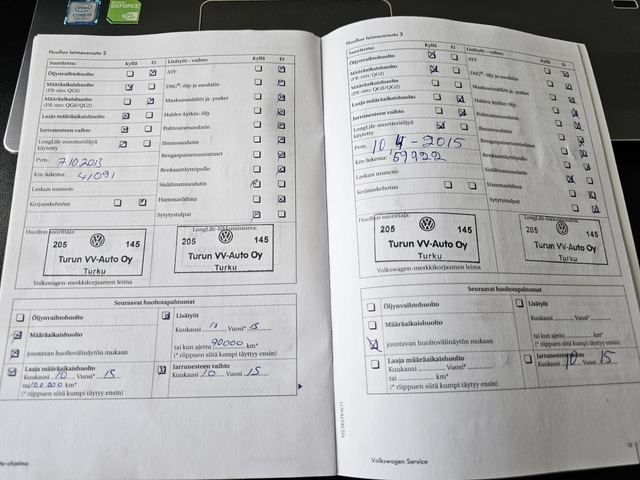 Huollon leimausruutu 2
Suoritettu: Kyllä Ei
Öljynvaihtohuolto
Määräaikaishuolto
(PR-nro: QG1)
Määräaikaishuolto
(PR-nro: QG0/QG2)
Laaja määräaikaishuolto
Jarrunesteen vaihto
LongLife-moottoriöljyä
käytetty
Pvm. 7.10.2013
Km-lukema: 41091
Laskun numero:
Korjauskehotus
Lisätyöt - vaihto Kyllä Ei
ATF
DSG®: öljy ja suodatin
Maakaasusäiliöt ja -putket
Haldex-kytkin: öljy
Polttoainesuodatin
Ilmansuodatin
Rengaspainetunnistimet
Renkaantäyttöpullo
Sisäilmansuodatin
Hammashihna
Sytytystulpat
Huollon suorittaja: LongLife-liikkumisturva:
205 145
Turun VV-Auto Oy
Turku
205 145
Turun VV-Auto Oy
Turku
Volkswagen-merkkikorjaamon leima
Seuraavat huoltotapahtumat
Öljynvaihtohuolto
Määräaikaishuolto
joustavan huoltovälinäytön mukaan
Laaja määräaikaishuolto
Kuukausi 10 Vuosi* 15
tai km*
(* riippuen siitä kumpi täyttyy ensin)
Lisätyöt
Kuukausi 10 Vuosi* 15
tai kun ajettu 90000 km*
(* riippuen siitä kumpi täyttyy ensin)
Jarrunesteen vaihto
Kuukausi 10 Vuosi 15
Huollon leimausruutu 3
Suoritettu: Kyllä Ei
Öljynvaihtohuolto
Määräaikaishuolto
(PR-nro: QG1)
Määräaikaishuolto
(PR-nro: QG0/QG2)
Laaja määräaikaishuolto
Jarrunesteen vaihto
LongLife-moottoriöljyä
käytetty
Pvm. 10.4-2015
Km-lukema: 59922
Laskun numero:
Korjauskehotus
Lisätyöt - vaihto Kyllä Ei
ATF
DSG®: öljy ja suodatin
Maakaasusäiliöt ja -putket
Haldex-kytkin: öljy
Polttoainesuodatin
Ilmansuodatin
Rengaspainetunnistimet
Renkaantäyttöpullo
Sisäilmansuodatin
Hammashihna
Sytytystulpat
Huollon suorittaja: LongLife-liikkumisturva:
205 145
Turun VV-Auto Oy
Turku
205 145
Turun VV-Auto Oy
Turku
Volkswagen-merkkikorjaamon leima
Seuraavat huoltotapahtumat
Öljynvaihtohuolto
Määräaikaishuolto
joustavan huoltovälinäytön mukaan
Laaja määräaikaishuolto
Kuukausi Vuosi*
tai km*
(* riippuen siitä kumpi täyttyy ensin)
Lisätyöt
Kuukausi Vuosi*
tai kun ajettu km*
(* riippuen siitä kumpi täyttyy ensin)
Jarrunesteen vaihto
Kuukausi 10 Vuosi 15
Volkswagen Service